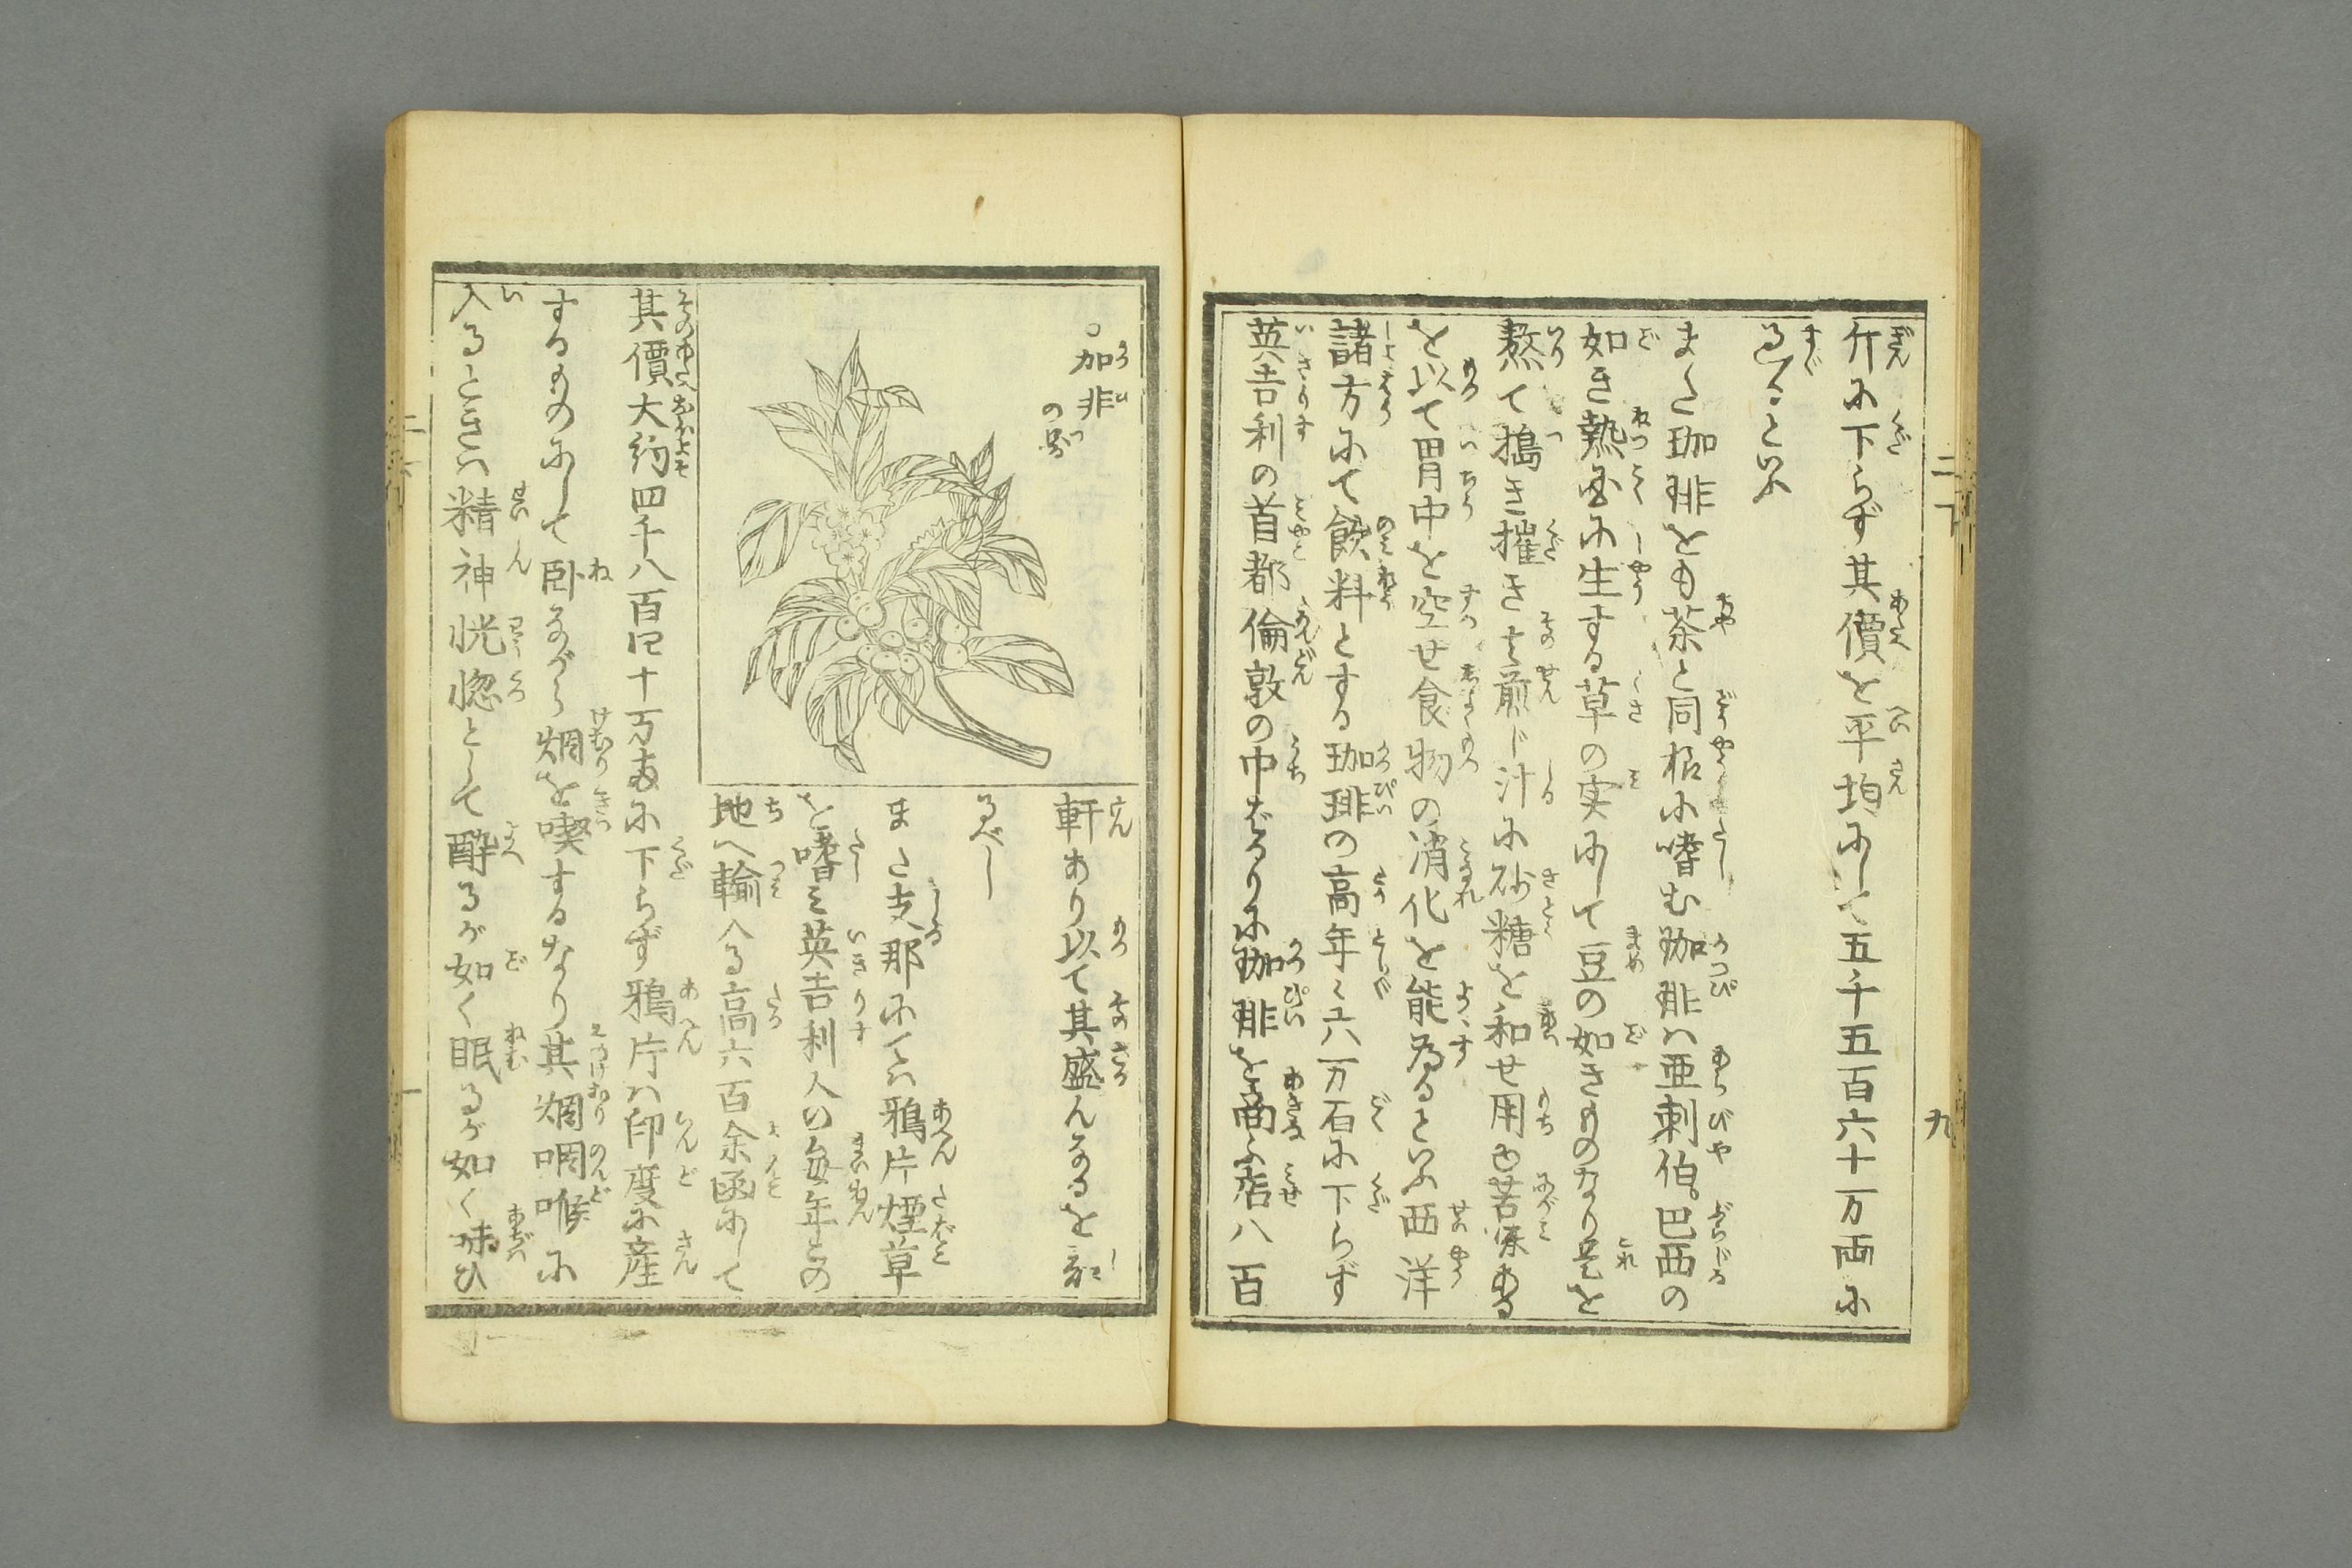 斤に下らず其價を平均にして五千五百六十万両に
過ぐといふ
また珈琲をも茶と同様に嗜む珈琲ハ亜剌伯。巴西の
如き熱国に生する草の実にして豆の如きものなり是を
熬て搗き摧き其煎じ汁に砂糖を和せ用も苦味ある
を以て胃中を空せ食物の消化を能為るといふ西洋
諸方にて飲料とする珈琲の高年々六万石に下らず
英吉利の首都倫敦の中ばかりに珈琲を商ふ店八百
二下
九
○加非
の図
軒あり以て其盛んなるを知
るべし
また支那にてハ鴉片煙草
を嗜み英吉利人の毎年との
地へ輸入る高六百余函にして
其價大約四千八百四十万両に下らず鴉片ハ印度に産
するものにして臥ながら烟を喫するなり其烟咽喉に
入るときハ精神恍惚として酔るが如く眠るが如く味ひ